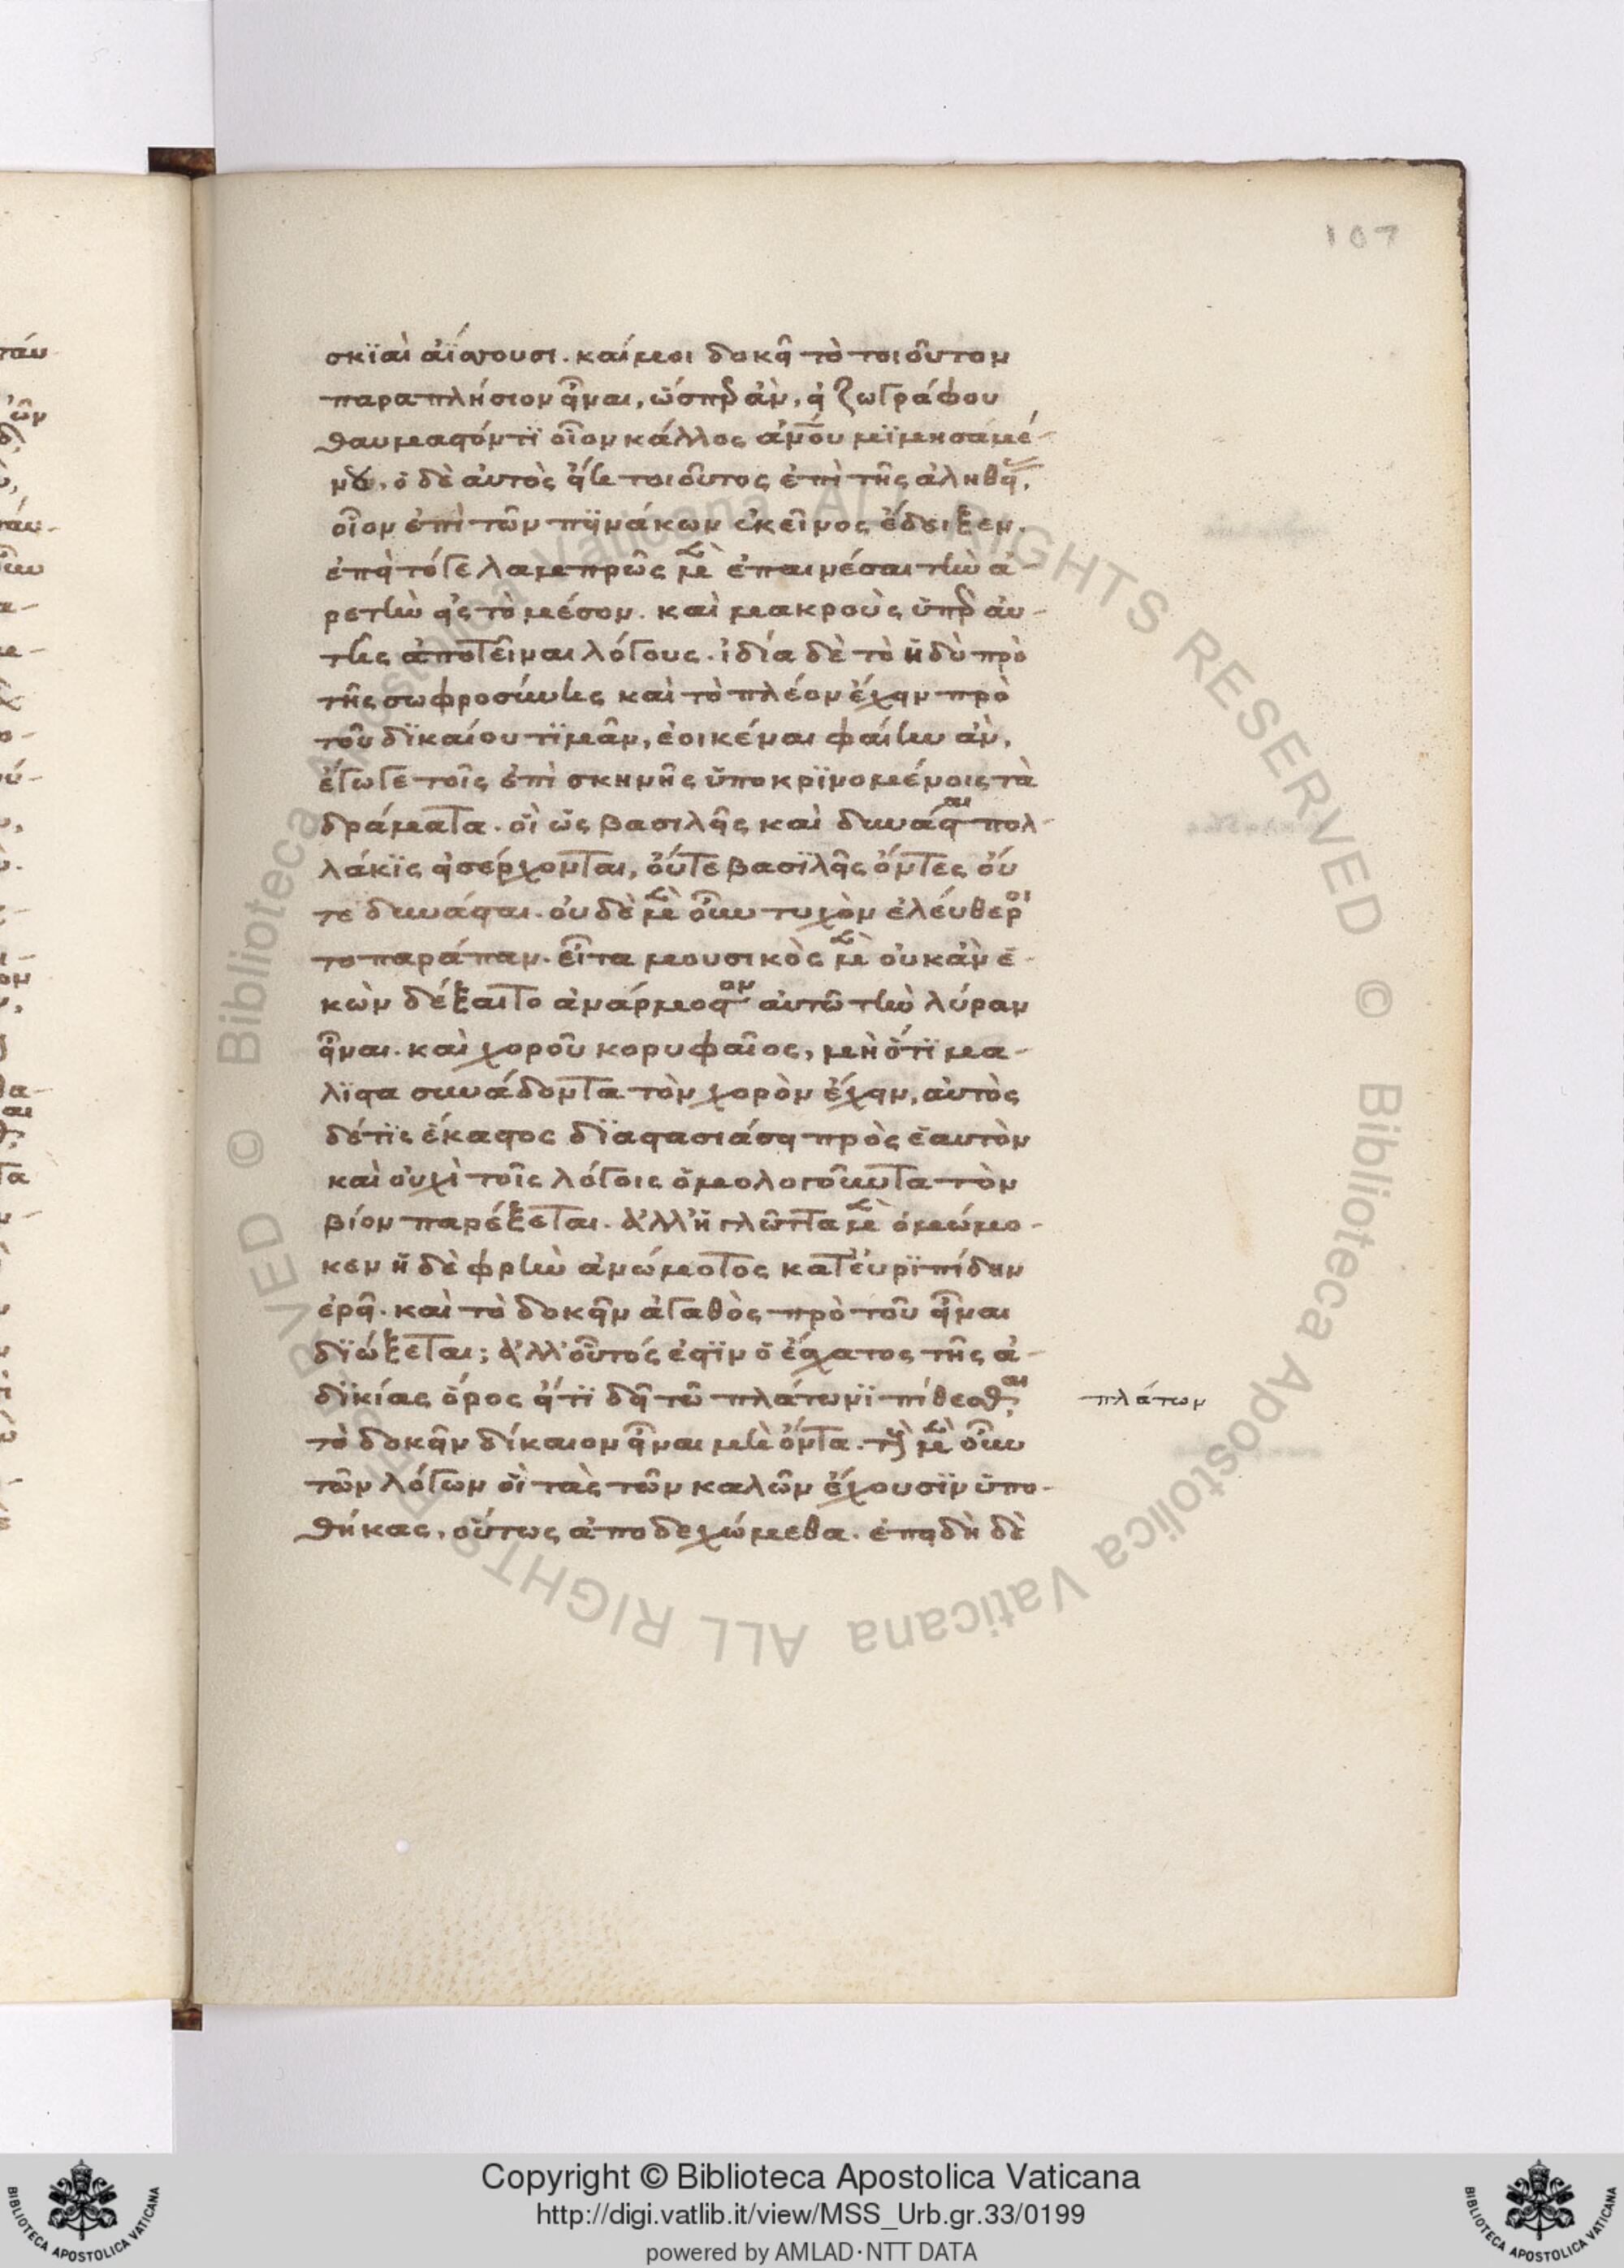 107
σκϊαὶ ἀΐσσουσι. καί μοι δοκεῖ τὸ τοιοῦτον
παραπλήσιον εἶναι, ὥσπερ ἂν, εἰ ζωγράφου
θαυμαστόν τϊ οἷον κάλλος ἀνου μϊμησαμέ-
νου, ὁ δὲ αὐτὸς εἴη τοιοῦτος ἐπὶ τῆς ἀληθεί,
οἷον ἐπὶ τῶν πϊνάκων ἐκεῖνος ἔδειξεν.
ἐπεὶ τό γε λαμπρῶς μὲν ἐπαινέσαι τὴν ἀ-
ρετὴν εἰς τὸ μέσον. καὶ μακροὺς ὑπὲρ αὐ-
τῆς ἀποτεῖναι λόγους. ἰδία δὲ τὸ ἡδὺ πρὸ
τῆς σωφροσύνης καὶ τὸ πλέον ἔχειν πρὸ
τοῦ δϊκαίου τϊμᾶν, ἐοικέναι φαίην ἂν,
ἔγωγε τοῖς ἐπὶ σκηνῆς ὑποκρϊνομένοις τὰ
δράματα. οἳ ὡς βασιλεῖς καὶ δυνάσται πολ-
λάκϊς εἰσέρχονται, οὔτε βασϊλεῖς ὄντες οὔ
τε δυνάσται. οὐδὲ μὲν οὖν τυχὸν ἐλεύθεροι
τοπαράπαν. εἶτα μουσικὸς μὲν οὐκ ἂν ἑ-
κὼν δέξαιτο ἀνάρμοστον αὐτῶ τὴν λύραν
εἶναι. καὶ χοροῦ κορυφαῖος, μὴ ὅτϊ μα-
λϊστα συνάδοντα τὸν χορὸν ἔχειν, αὐτὸς
δέ τϊς ἕκαστος δϊαστασιάσει πρὸς ἑαυτὸν
καὶ οὐχὶ τοῖς λόγοις ὁμολογοῦντα τὸν
βίον παρέξεται. ἀλλ' ἡ γλῶττα μὲν ὀμώμο-
κεν ἡ δὲ φρὴν ἀνώμοτος κατ' εὐρϊπίδην
ἐρεῖ. καὶ τὸ δοκεῖν ἀγαθὸς πρὸ τοῦ εἶναι
δϊώξεται; ἀλλ' οὗτός ἐστϊν ὁ ἔσχατος τῆς ἀ-
δϊκίας ὅρος εἴ τϊ δεῖ τῶ πλάτωνϊ πίθεσθαι,
πλάτων
τὸ δοκεῖν δίκαιον εἶναι μὴ ὄντα. τοὺς μὲν οὖν
τῶν λόγων οἳ τὰς τῶν καλῶν ἔχουσϊν ὑπο-
θήκας, οὕτως ἀποδεχώμεθα. ἐπειδὴ δὲ
Copyright © Biblioteca Apostolica Vaticana
http://digi.vatlib.it/view/MSS_Urb.gr.33/0199
powered by AMLAD·NTT DATA